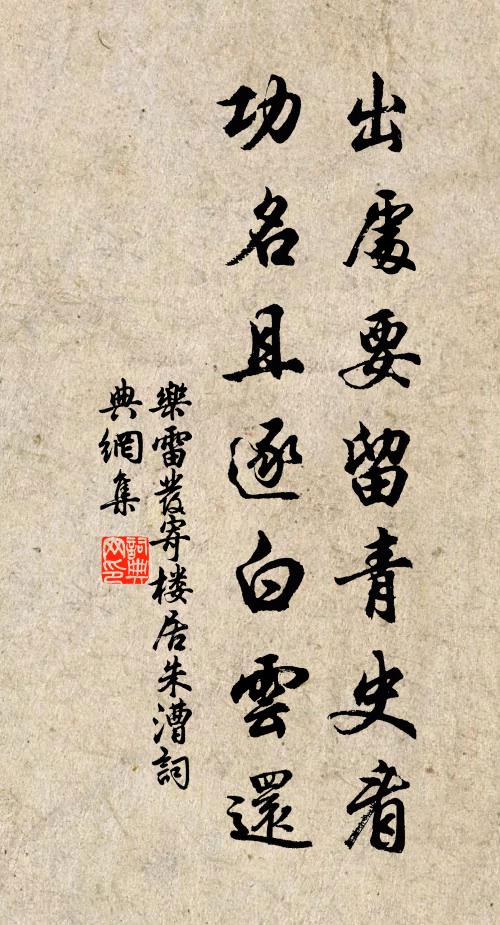 出處要留青史看
功名且逐白雲還
樂雷發寄楼居朱漕詞
典網集
詞典
网印